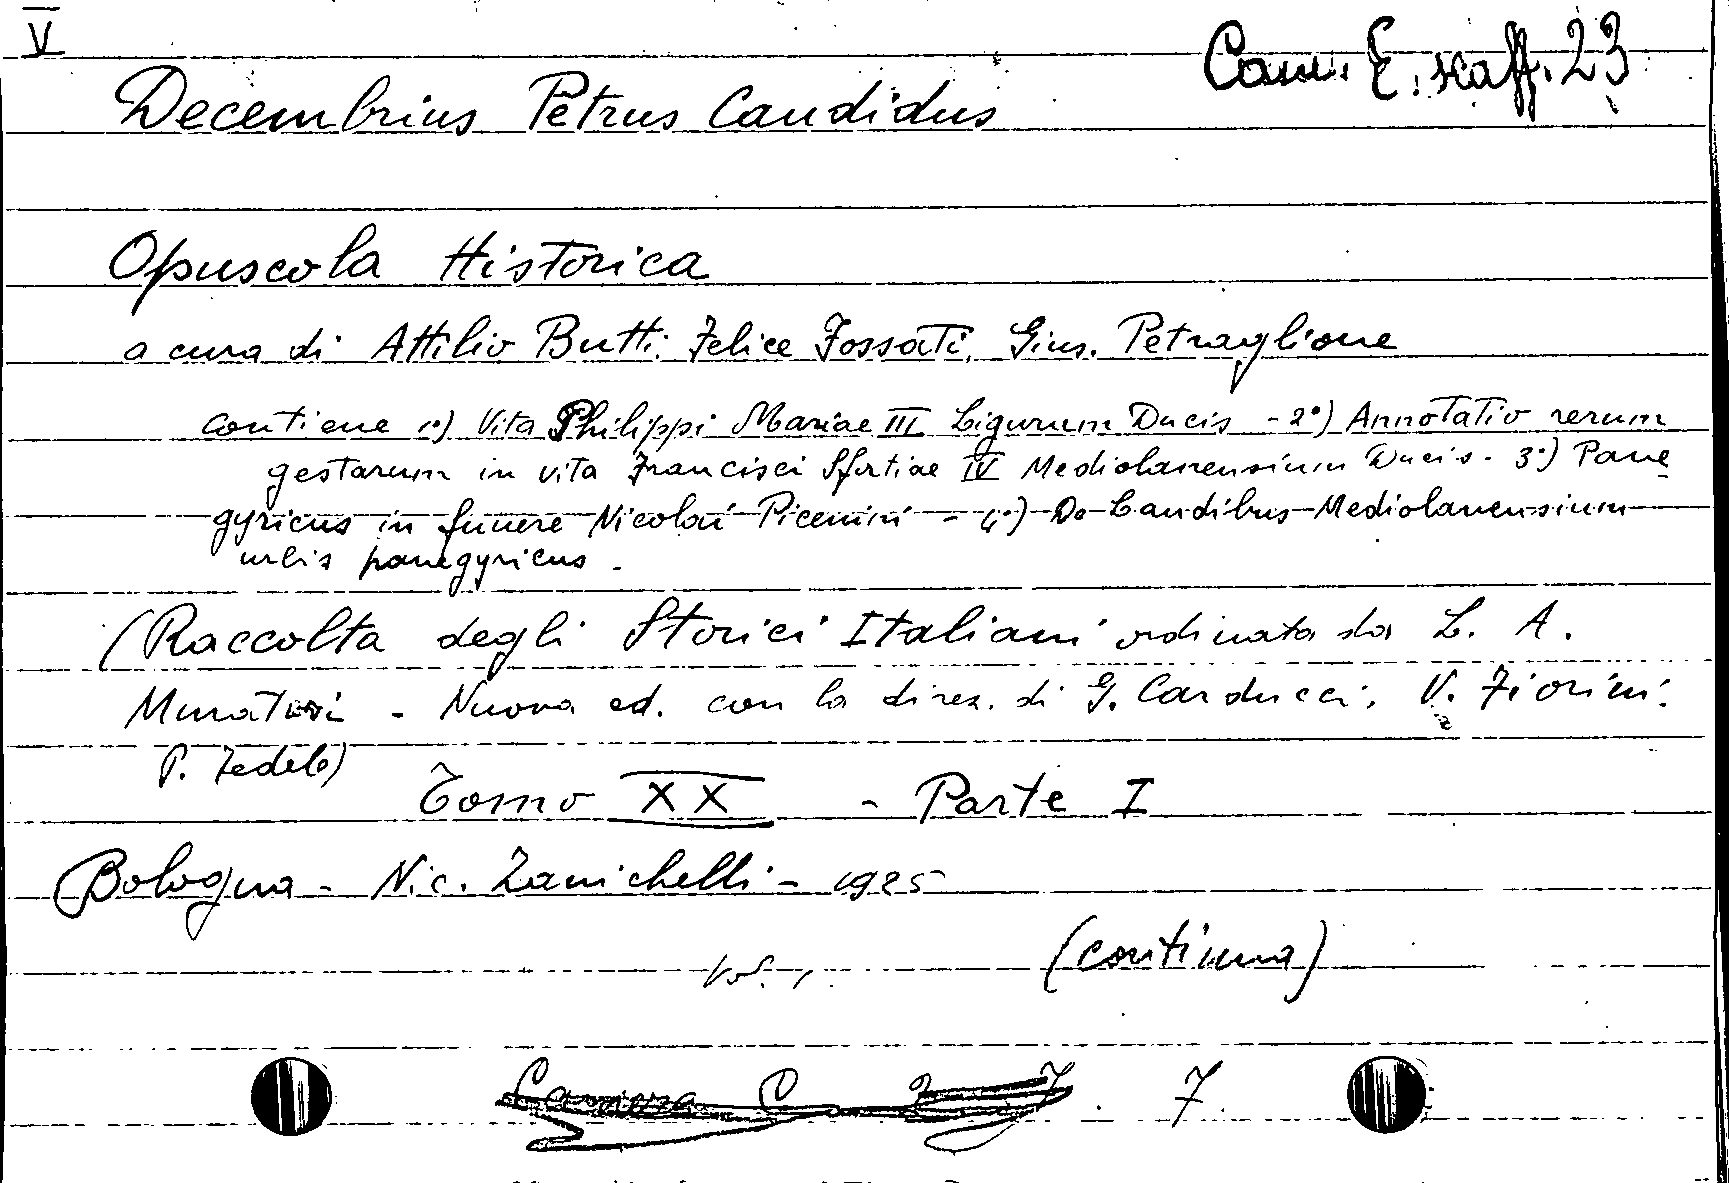 V
Cam. E. scaff. 23
Decembrius Petrus Candidus
Opuscola Historica
a cura di Attilio Butti, Felice Fossati, Gius. Petraglione
contiene 1°) Vita Philippi Mariae III Ligurum Ducis - 2°) Annotatio rerum
gestarum in vita Francisci Sfortiae IV Mediolanensium Ducis - 3°) Pane
gyricus in funere Nicolai Picenini - 4°) De Laudibus Mediolanensium
urbis panegyricus -
(Raccolta degli Storici Italiani ordinata da L. A.
Muratori - Nuova ed. con la direz. di G. Carducci, V. Fiorini,
P. Fedele)
Tomo XX - Parte I
Bologna - Nic. Zanichelli - 1925
(continua)
Vol. 1.
Camera C 7.